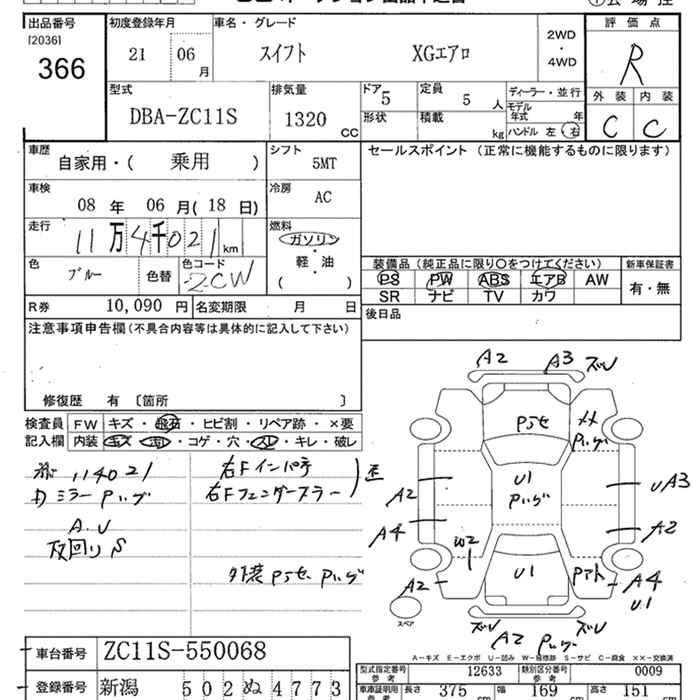 出品番号
[2036]
366
初度登録年月
21 06 月
車名・グレード
スイフト XGエアロ
2WD
・
4WD
評価点
R
外装 内装
C C
型式
DBA-ZC11S
排気量
1320 CC
ドア 5
形状
定員 5 人
積載 kg
ディーラー・並行
モデル年式 年
ハンドル 左・右
車歴
自家用・( 乗用 )
シフト
5MT
セールスポイント (正常に機能するものに限ります)
車検
08 年 06 月(18 日)
冷房
AC
走行
11万4千021 km
燃料
ガソリン
軽・油
( )
色
ブルー
色替
色コード
ZCW
装備品(純正品に限り○をつけてください)
PS PW ABS エアB AW
SR ナビ TV カワ
新車保証書
有・無
R券 10,090 円
名変期限 月 日
後日品
注意事項申告欄(不具合内容等は具体的に記入して下さい)
修復歴 有 〔箇所 〕
検査員
記入欄
FW キズ・飛石・ヒビ割・リペア跡・×要
内装 キズ・汚レ・コゲ・穴・スレ・キレ・破レ
114021
ミラー
A.U
右Fインパネ
右Fフェンダー
外装
A2 A3 ズレ
P5セ
U1
A2
A4
UA3
A2
W2
A2
U1
A4
U1
スペア
A2
A-キズ E-エクボ U-凹み W-板修跡 S-サビ C-腐食 ××-交換済
車台番号 ZC11S-550068
登録番号 新潟 502ぬ4773
型式指定番号 参考 12633
類別区分番号 参考 0009
車庫証明用 参考 長さ 375 cm 幅 169 cm 高さ 151 cm